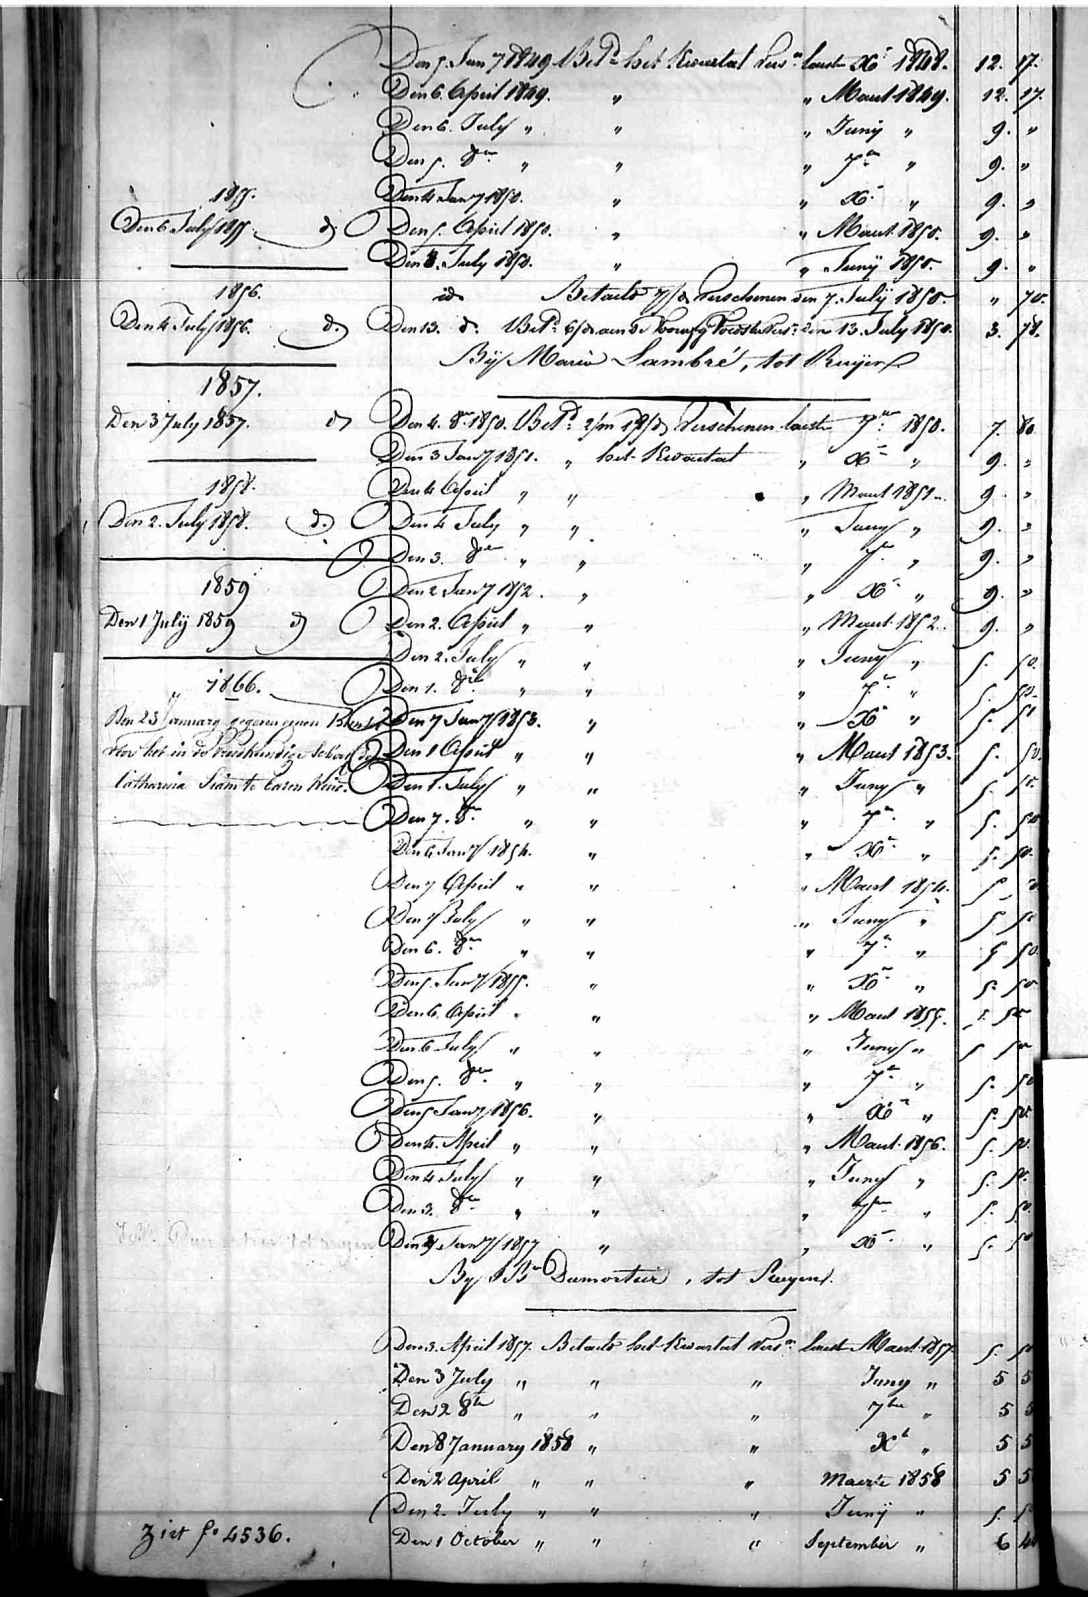 Den 5. Jan 7 1849 Betd het Kwartal Versn laest Xr 1848. 12. 17.
Den 6. April 1849. " " Maert 1849. 12. 17.
Den 6. July " " " Juny " 9. "
Den 5. 8er " " " 7er " 9. "
Den 4 Jany 1850. " " Xr " 9. "
Den 5. April 1850. " " Maert 1850. 9. "
Den July 1850. " " Juny 1850. 9. "
id Betaelt 7/d Verschenen den 7. July 1850. " 70.
Den 13. do. Bet. 6/d aen de Versn den 13. July 1850. 3. 78.
By Marie Lambré, tot
Den 4. 8er 1850. Betd 2/m 18/d Verschenen laeste 7er 1850. 7. 80
Den 3 Jany 1851. " het Kwartal " Xr " 9. "
Den 4 April " " " Maert 1851. 9. "
Den 4 July " " " Juny " 9. "
Den 3. 8er " " " 7er " 9. "
Den 2 Jany 1852. " " Xr " 9. "
Den 2. April " " " Maert 1852. 9. "
Den 2. July " " " Juny " 5. 50.
Den 1. 8er " " " 7er " 5. 50.
Den 7 Jany 1853. " " Xr " 5. 50
Den 1 April " " " Maert 1853. 5. 50.
Den 1. July " " " Juny " 5. 50.
Den 7. 8er " " " 7er " 5. 50
Den 6 Jany 1854. " " Xr " 5. 50.
Den 7 April " " " Maert 1854. 5. 50
Den 7 July " " " Juny " 5 50
Den 6. 8er " " " 7er " 5 50.
Den 5 Jany 1855. " " Xr " 5. 50.
Den 6. April " " " Maert 1855. 5. 50
Den 6 July " " " Juny " 5 50
Den 5. 8er " " " 7er " 5. 50
Den 5 Jany 1856. " " Xr " 5. 50.
Den 4. April " " " Maert 1856. 5. 50.
Den 4 July " " " Juny " 5. 50.
Den 3. 8er " " " 7er " 5. 50.
Den Jany 1857 " " Xr " 5. 50
By Bn Dumortier, tot
Den 3. April 1857. Betaelt het Kwartal Versn laest Maert 1857 5. 50
Den 3 July " " " Juny " 5 5
Den 2 8br " " " 7bre " 5 5
Den 8 January 1858 " " Xb " 5 5
Den 2 April " " " Maerte 1858 5 5
Den 2. July " " " Juny " 5. 5
Den 1 October " " " September " 6 4
1855.
Den 6 July 1855. d
1856.
Den 4 July 1856. d.
1857.
Den 3 July 1857. d
1858.
Den 2. July 1858. d.
1859
Den 1 July 1859 d
1866.
Den 23 January gegeven eenen
voor het in de
Catharina te Caron
Ziet fo 4536.